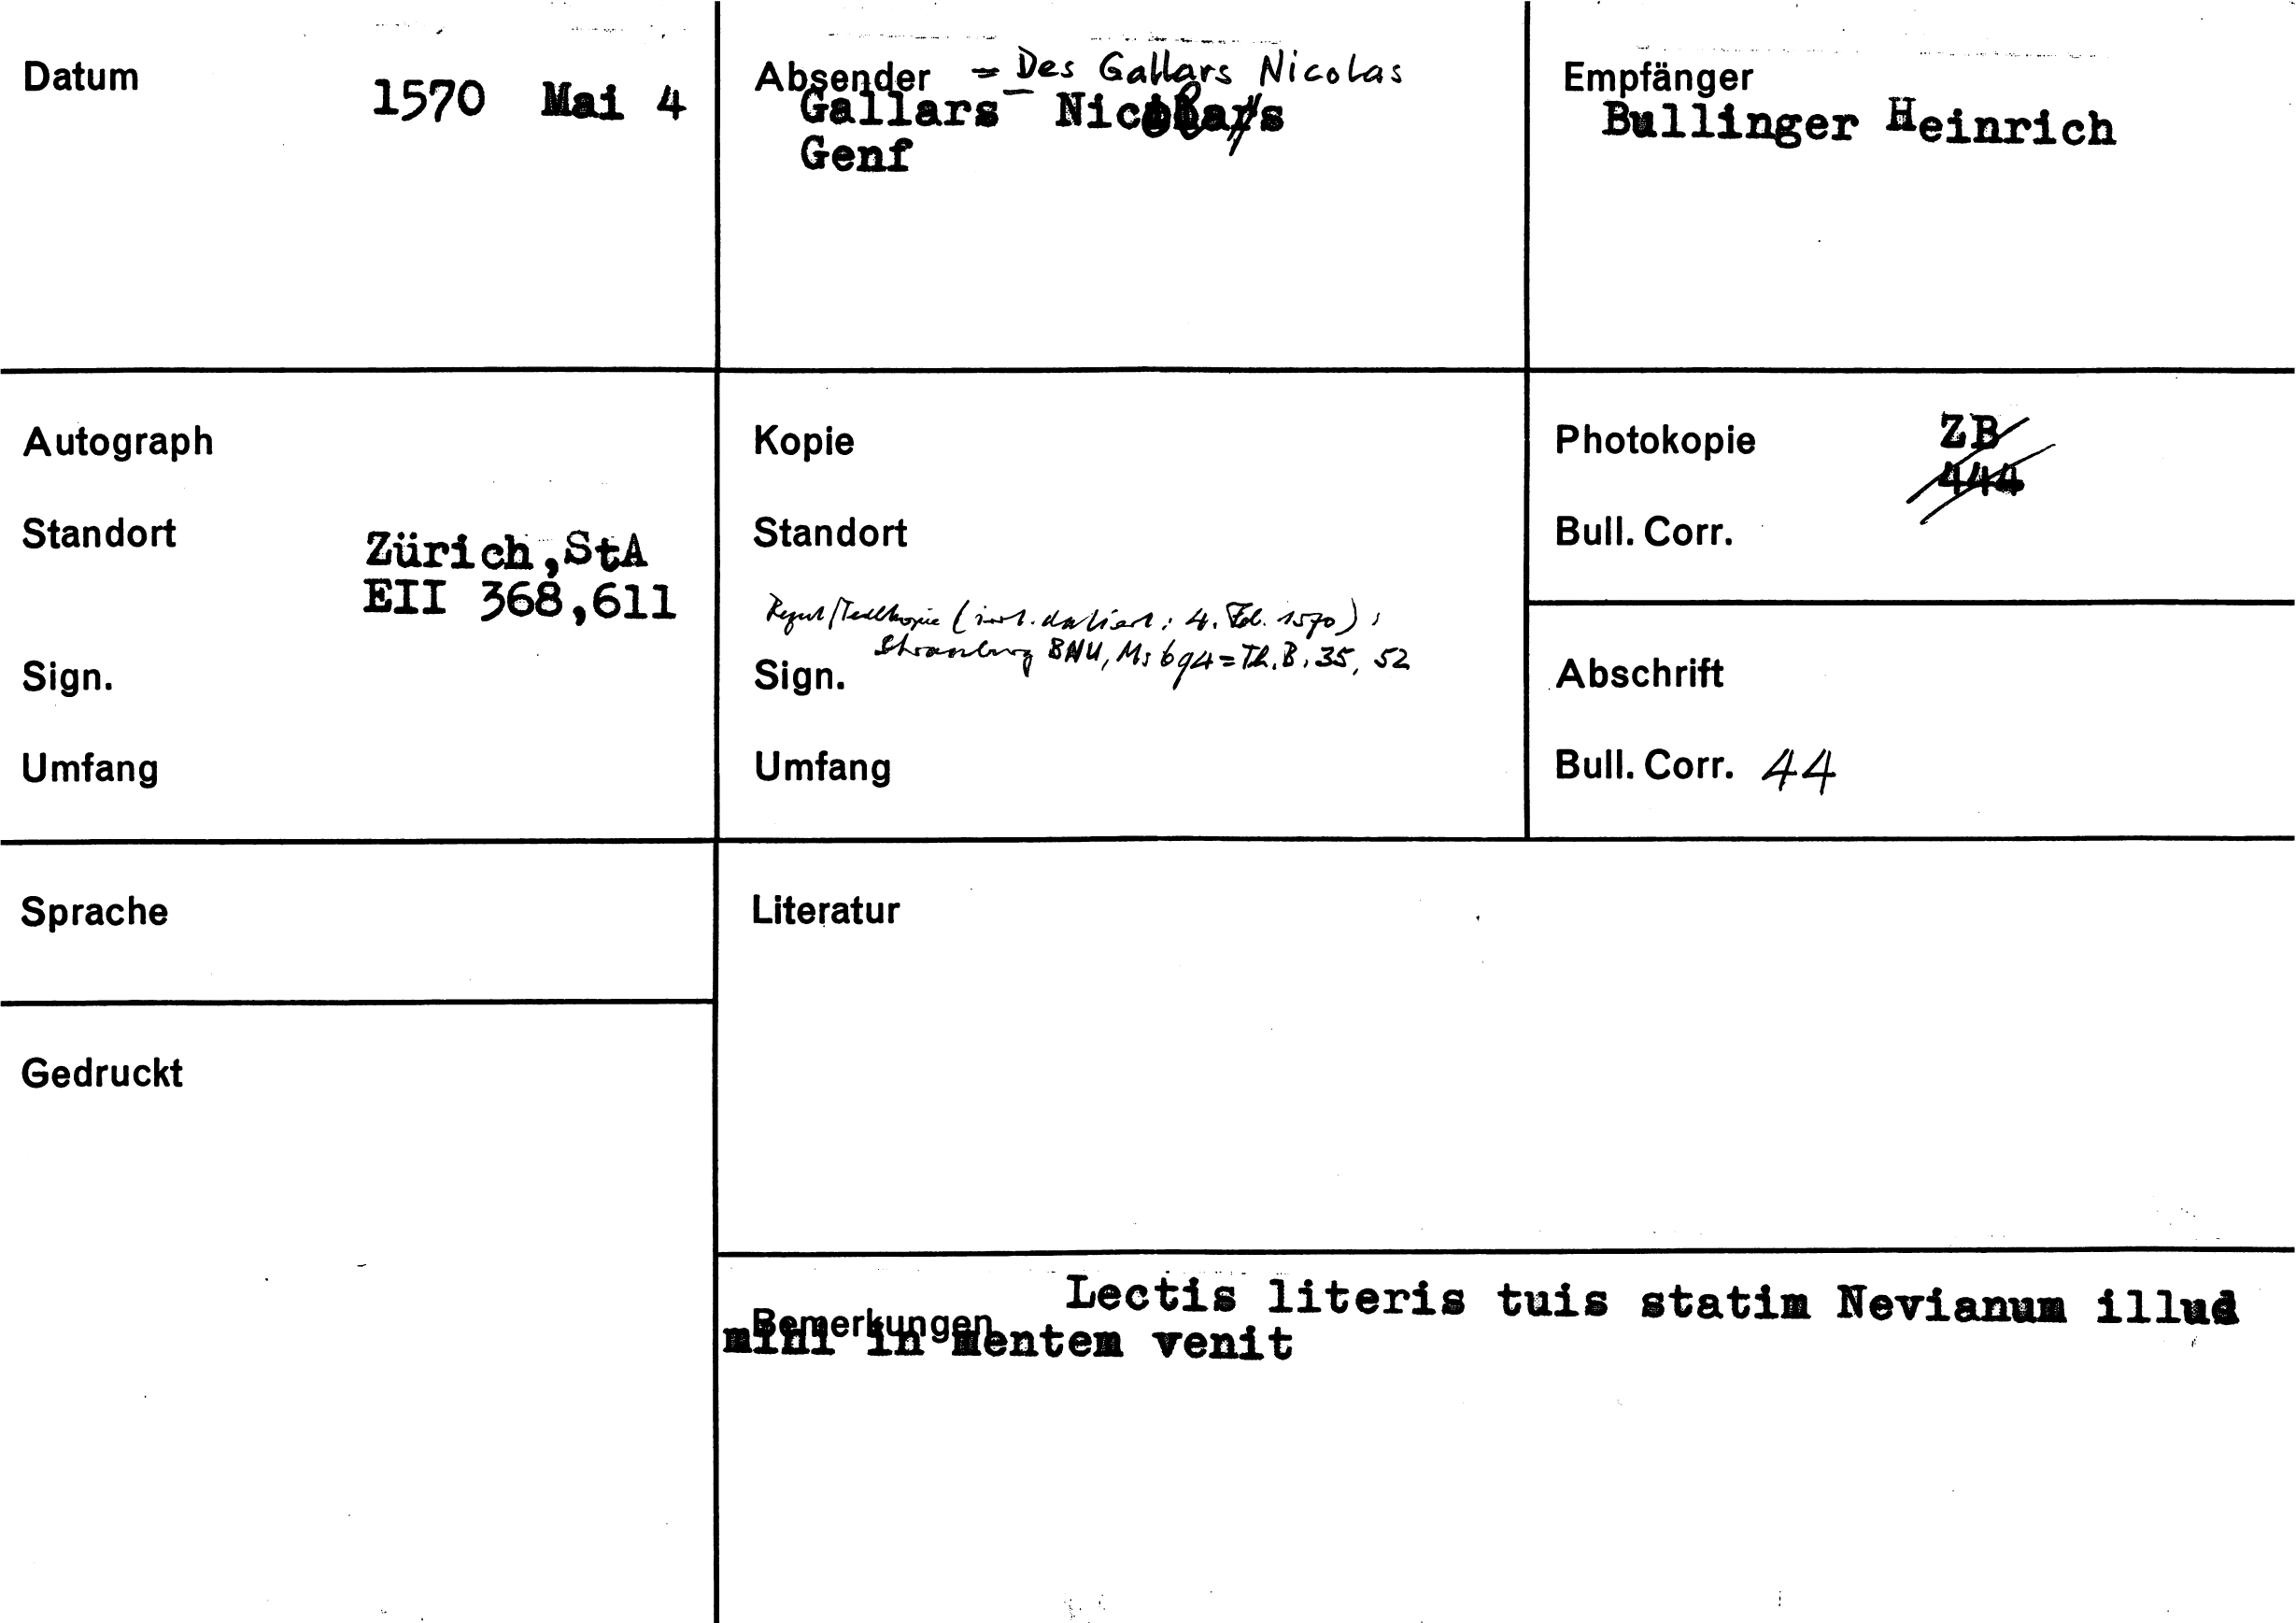 Datum
1570 Mai 4
Absender = Des Gallars Nicolas
Gallars Nicolas
Genf
Empfänger
Bullinger Heinrich
Autograph
Standort
Zürich,StA
EII 368,611
Sign.
Umfang
Kopie
Standort
Regest/Teilkopie (irrt. datiert: 4. Feb. 1570):
Strassburg BNU, Ms 694=Th.B. 35, 52
Sign.
Umfang
Photokopie
ZB
444
Bull. Corr.
Abschrift
Bull. Corr. 44
Sprache
Gedruckt
Literatur
Bemerkungen
Lectis literis tuis statim Nevianum illud
mihi in mentem venit